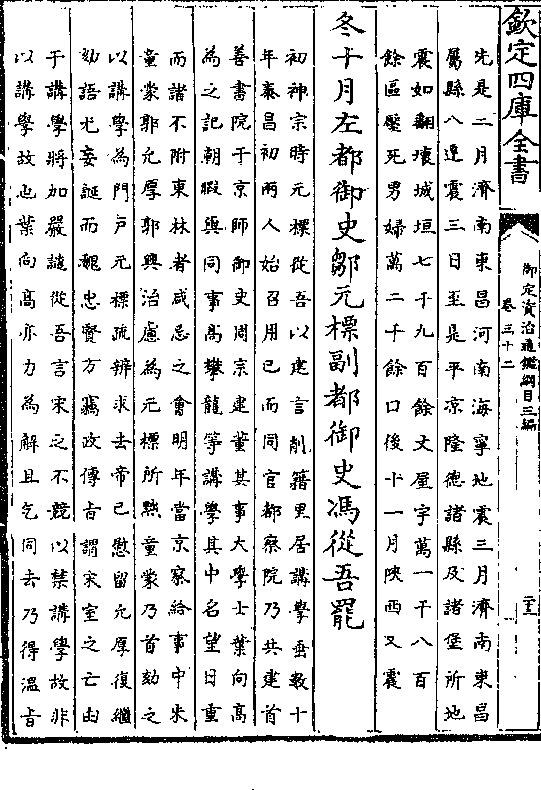 欽定四庫全書
御定資治通鑑綱目三編
卷三十二
先是二月濟南東昌河南海寧地震三月濟南東昌
屬縣八連震三日至是平涼隆德諸縣及諸堡所地
震如翻壞城垣七千九百餘丈屋宇萬一千八百
餘區壓死男婦萬二千餘口後十一月陜西又震
冬十月左都御史鄒元標副都御史馮從吾罷
初神宗時元標從吾以建言削籍里居講學垂數十
年泰昌初兩人始召用已而同官都察院乃共建首
善書院于京師御史周宗建董其事大學士葉向高
為之記朝暇與同事高攀龍等講學其中名望日重
而諸不附東林者咸忌之會明年當京察給事中朱
童蒙郭允厚郭興治慮為元標所黜童蒙乃首劾之
以講學為門戸元標疏辨求去帝已慰留允厚復繼
劾語尤妄誕而魏忠賢方竊政傳旨謂宋室之亡由
于講學將加嚴譴從吾言宋之不競以禁講學故非
以講學故也葉向高亦力為解且乞同去乃得溫旨